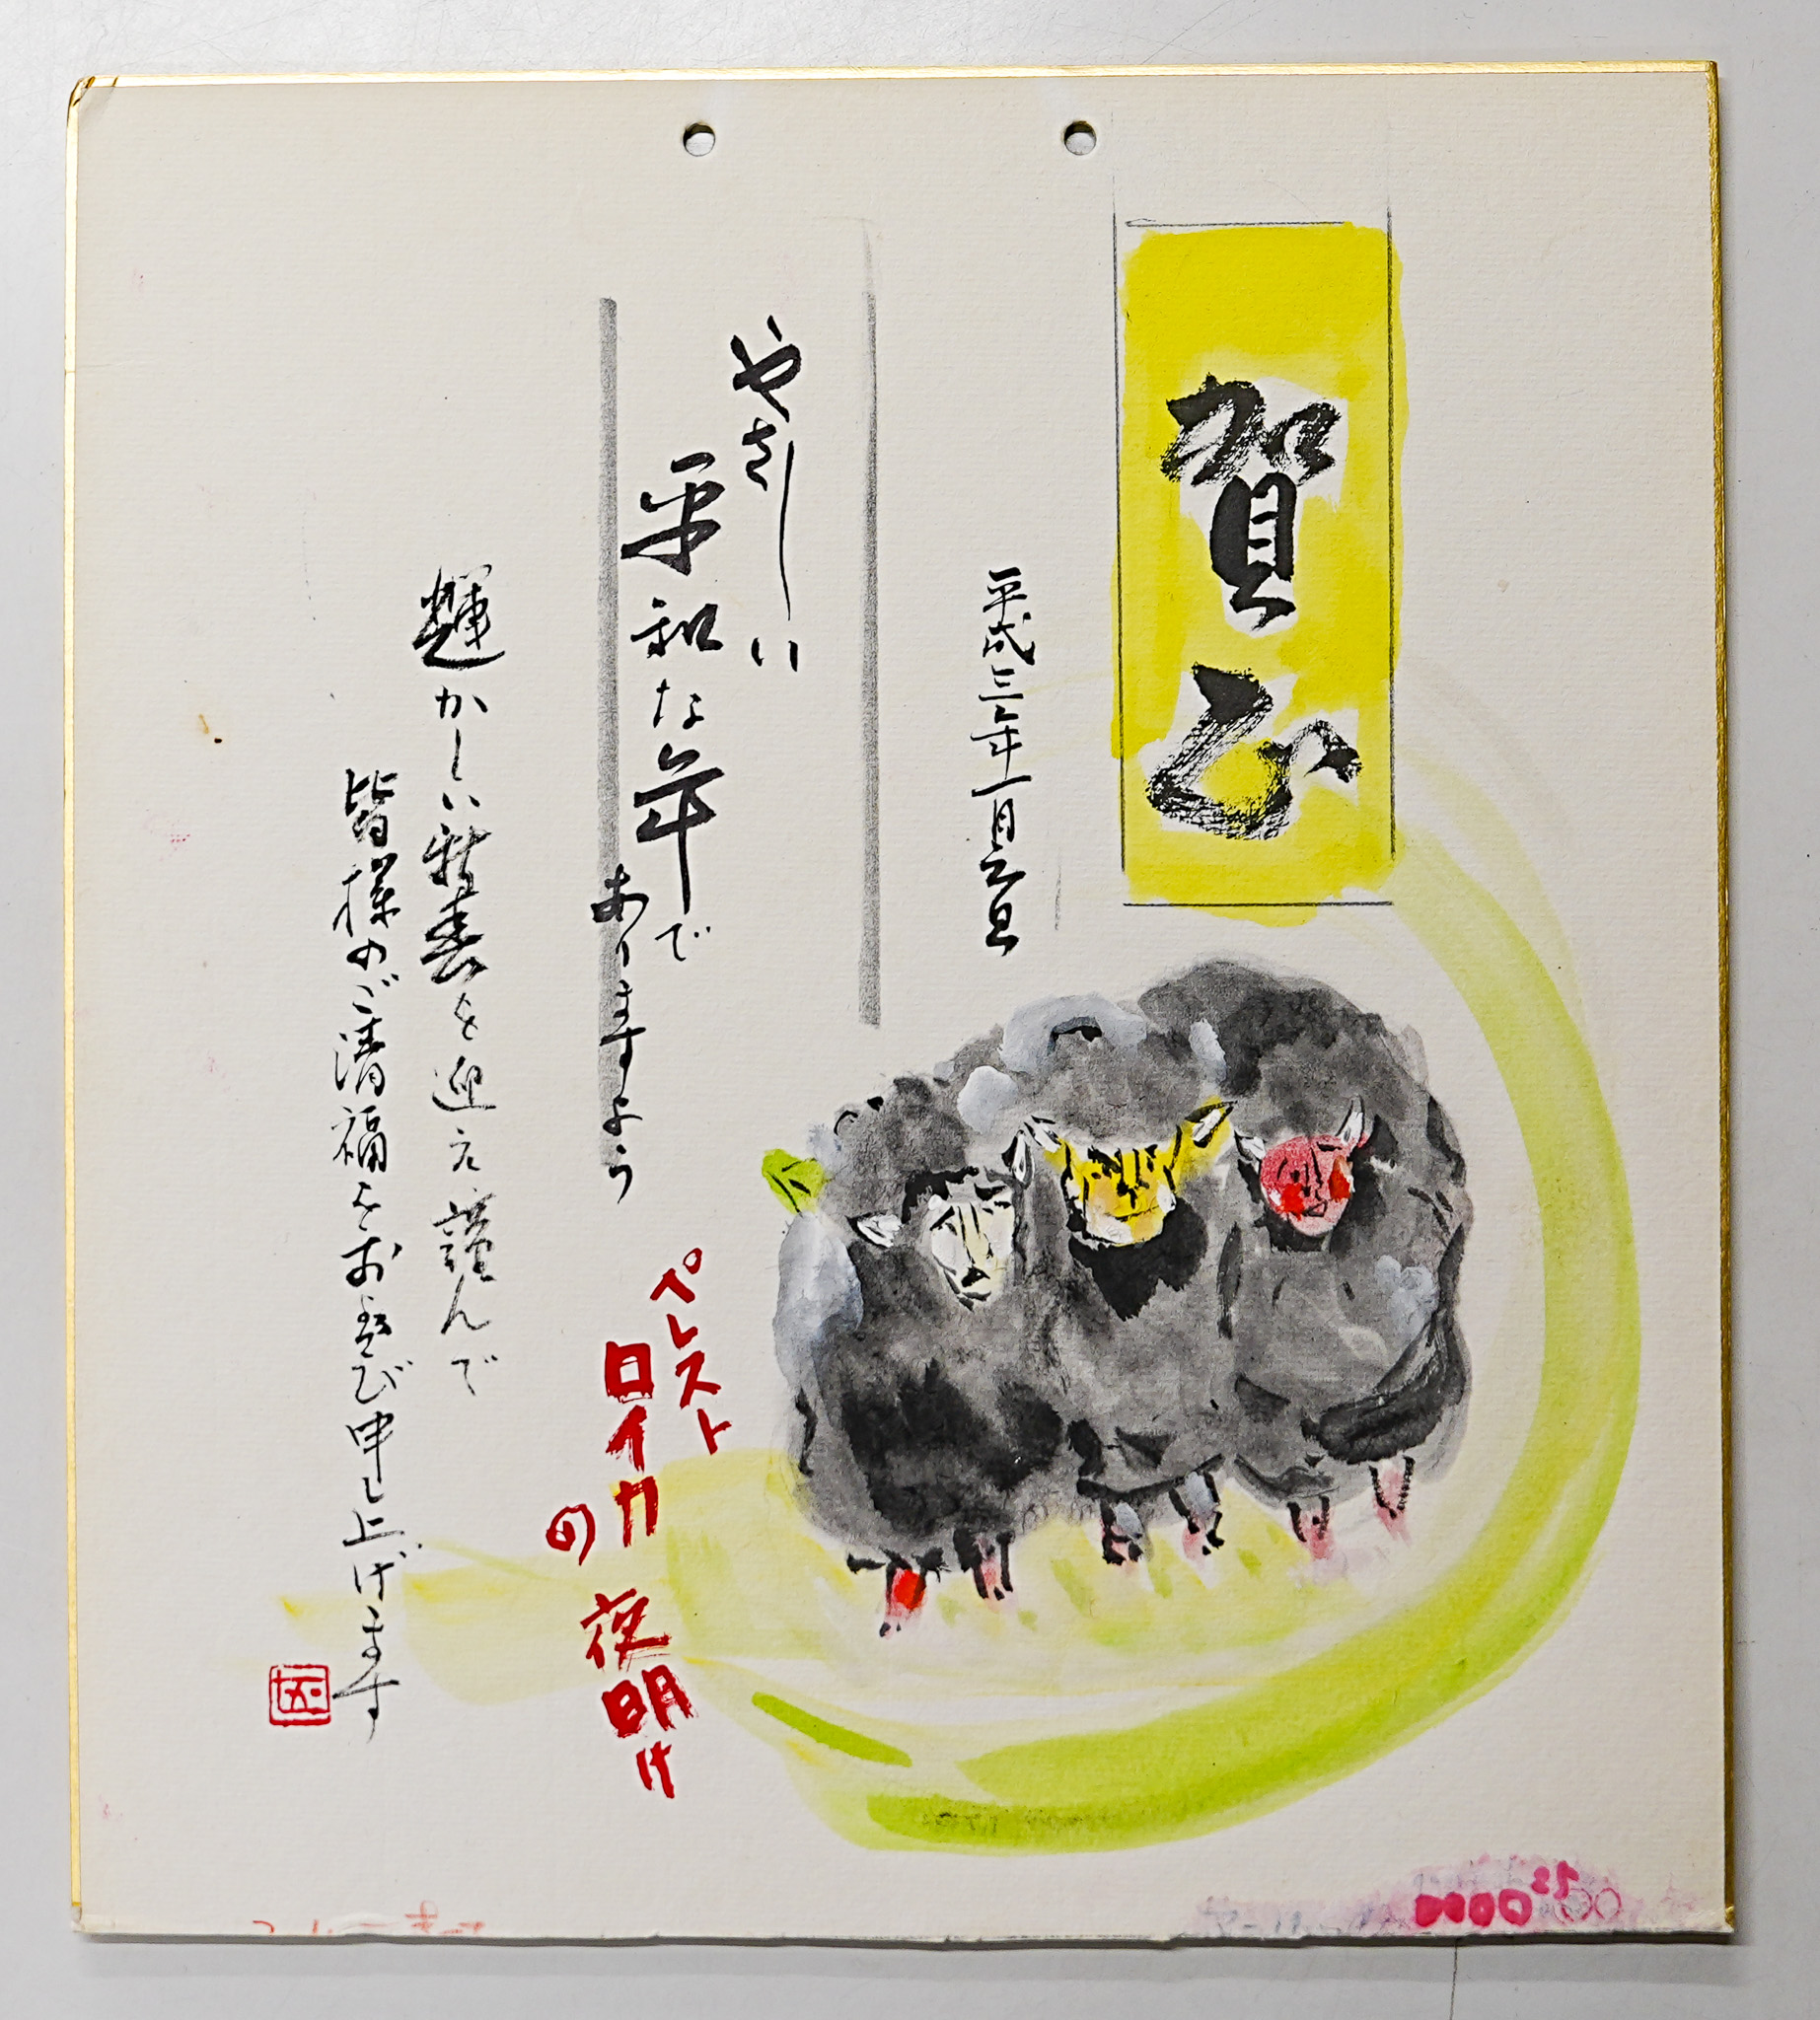 賀正
平成三年一月元旦
やさしい
平和な年で
ありますよう
ペレスト
ロイカ
の
夜明け
輝かしい新春を迎え謹んで
皆様のご清福をお慶び申し上げます